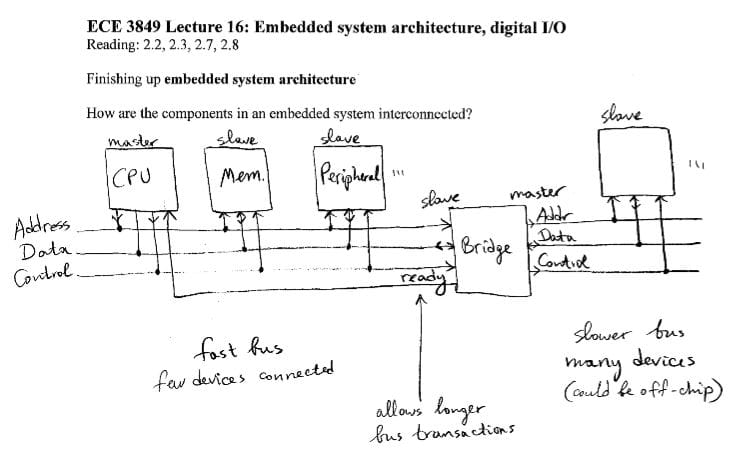 ECE 3849 Lecture 16: Embedded system architecture, digital I/O
Reading: 2.2, 2.3, 2.7, 2.8
Finishing up embedded system architecture
How are the components in an embedded system interconnected?
slave
master
slave
slave
CPU
Mem.
Peripheral
slave
master
Address
Data
Control
Bridge
Addr
Data
Control
ready
fast bus
few devices connected
slower bus
many devices
(could be off-chip)
allows longer
bus transactions